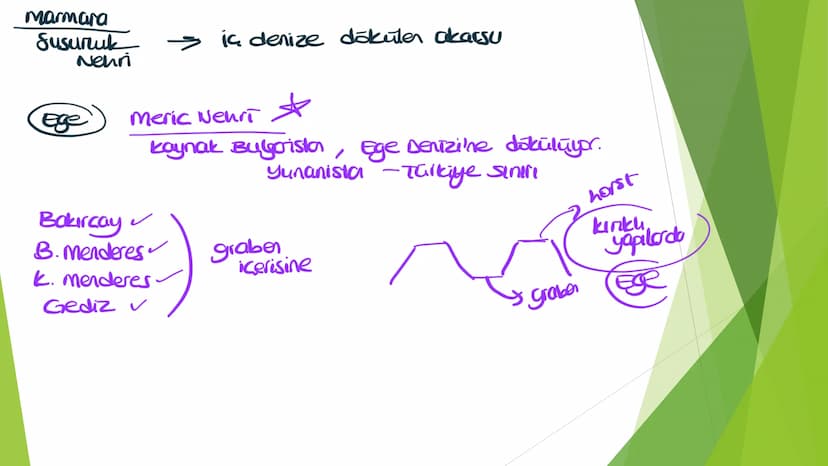 Marmara
Susurluk
Nehri
→ iç denize dökülen akarsu
Ege
Meriç Nehri
Kaynak Bulgaristan, Ege Denizi'ne dökülüyor.
Yunanistan - Türkiye sınırı
Bakırçay
B. Menderes
K. Menderes
Gediz
graben
içerisine
horst
kırıklı
yapılarda
Ege
graben